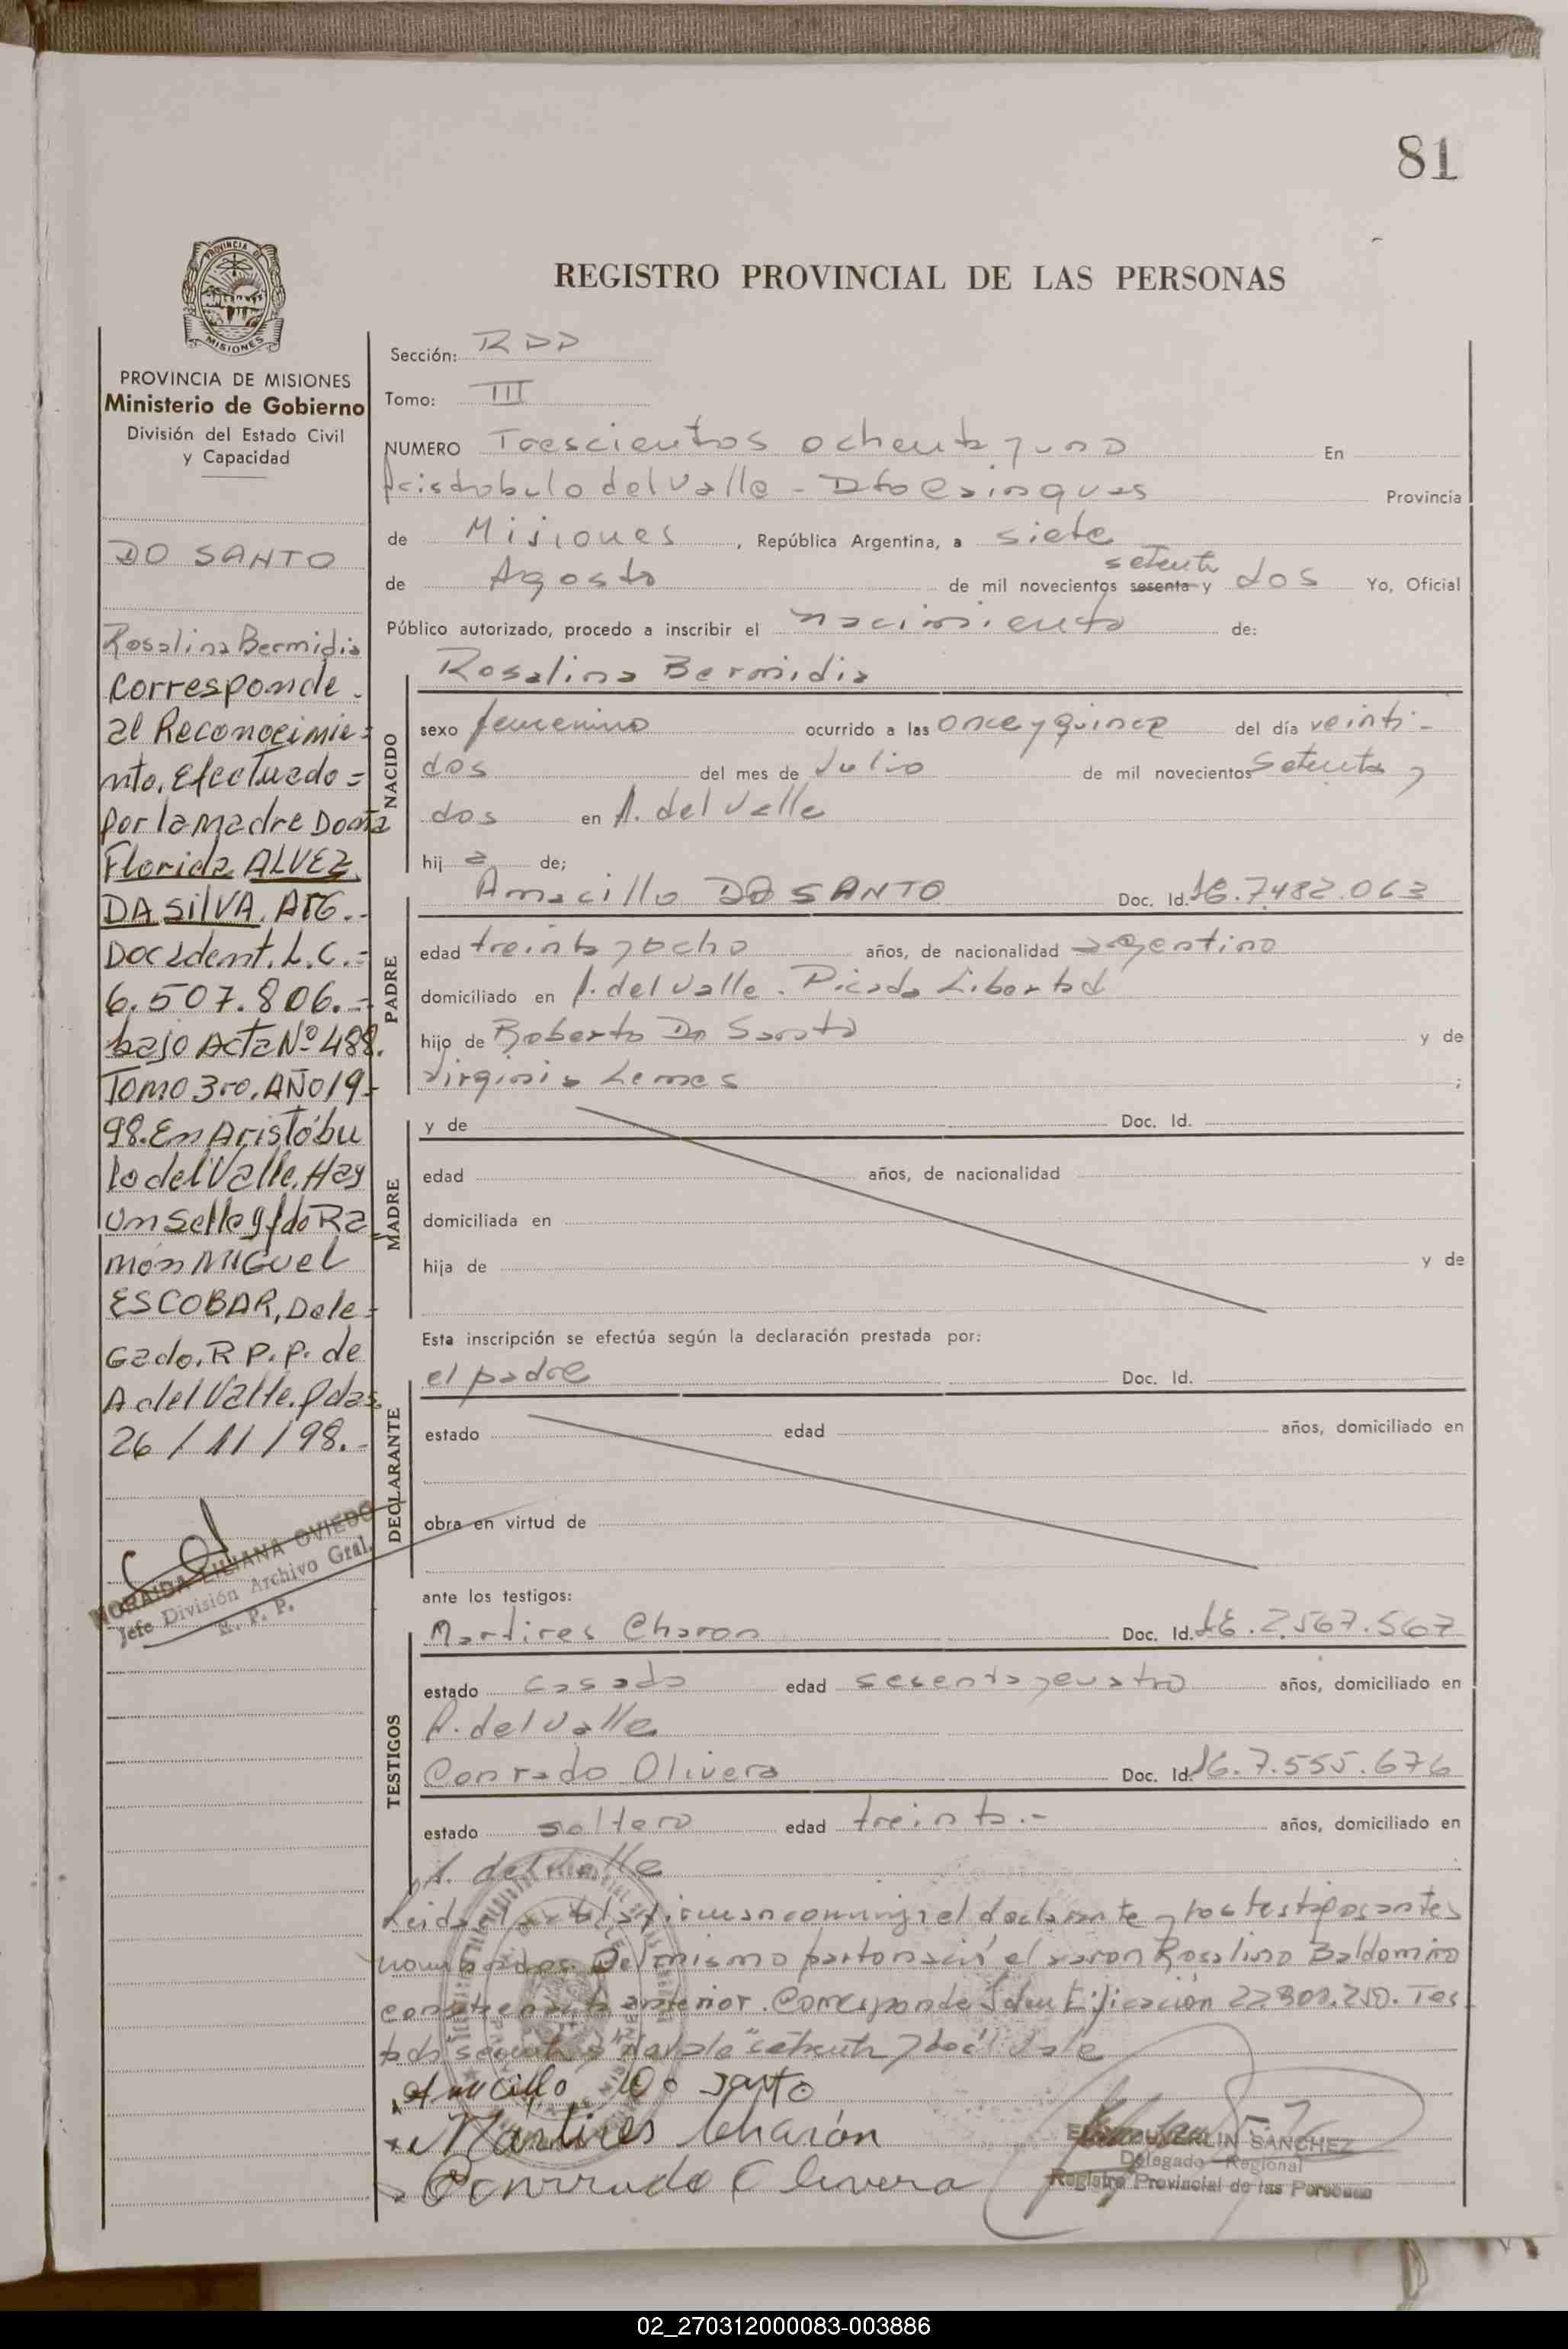 81
REGISTRO PROVINCIAL DE LAS PERSONAS
PROVINCIA DE MISIONES
Ministerio de Gobierno
División del Estado Civil
y Capacidad
DO SANTO
Rosalina Bermidia
Corresponde.
al Reconocimie=
nto. Efectuado=
por la madre Doña
Florida ALVEZ
DA SILVA. ARG.-
Doc Ident. L.C.-
6.507.806.-
bajo Acta Nº 488.
Tomo 3ro. AÑO 19-
98. En Aristóbu
lo del Valle. Hay
un sello y fdo Ra
món MIGuel
ESCOBAR, Dele=
Gado. R P. P. de
A del Valle. Pdas.
26/11/98.-
NORAIDA LILIANA OVIEDO
Jefe División Archivo Gral.
R. P. P.
Sección: RDD
Tomo: III
NUMERO Trescientos ochenta y uno En
Aristobulo del Valle - Dto Cainguas Provincia
de Misiones, República Argentina, a siete
setenta
de Agosto de mil novecientos sesenta y dos Yo, Oficial
Público autorizado, procedo a inscribir el nacimiento de:
NACIDO
Rosalina Bermidia
sexo femenino ocurrido a las once y quince del día veinti-
dos del mes de Julio de mil novecientos setenta y
dos en A. del Valle
hij a de;
PADRE
Amacillo DO SANTO Doc. Id. 7.482.063
edad treinta y ocho años, de nacionalidad argentino
domiciliado en A. del Valle. Picada Libertad
hijo de Roberto Do Santo y de
Virginia Lemes ;
MADRE
y de Doc. Id.
edad años, de nacionalidad
domiciliada en
hija de y de
Esta inscripción se efectúa según la declaración prestada por:
DECLARANTE
el padre Doc. Id.
estado edad años, domiciliado en
obra en virtud de
ante los testigos:
TESTIGOS
Martires Charon Doc. Id. LE. 2.567.567
estado casado edad sesenta y cuatro años, domiciliado en
A. del Valle
Conrado Olivera Doc. Id. 7.555.676
estado soltero edad treinta.- años, domiciliado en
A. del Valle
Leida el acta la firman conmigo el declarante y los testigos antes
nombrados. Del mismo parto nació el varon Rosalino Baldomiro
anterior. Corresponde Identificación 22.801.250. Tes
tado no vale "setenta y dos" Vale
Amacillo Do Santo
Martires Charón
Conrrado Olivera
SANCHEZ
Delegado Regional
Registro Provincial de las Personas
02_270312000083-003886